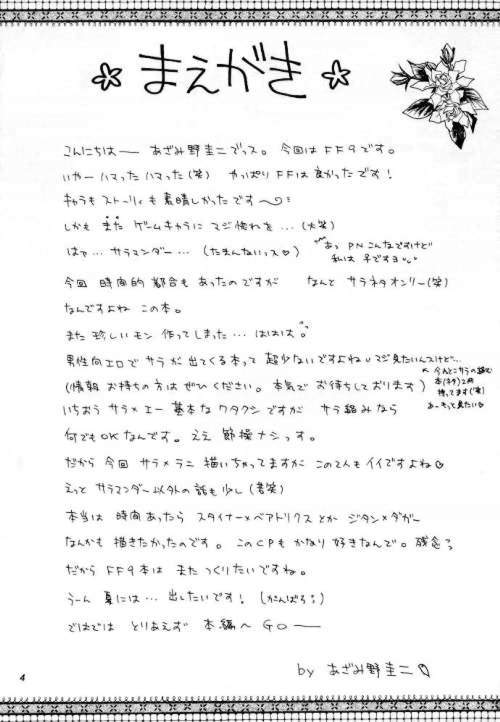 まえがき
こんにちはー あざみ野圭二でっス。今回はFF9です。
いやーハマったハマった(笑) やっぱりFFは良かったです!
キャラもストーリィも素晴しかったです〜
しかも また ゲームキャラに マジ惚れを…(火笑)
はァ… サラマンダー…(たまんないっス♡)
あっ PN こんなですけど
私は 子ですヨ
今回 時間的都合もあったのですが なんと サラネタオンリー(笑)
なんですよね この本。
また珍しいモン 作ってしまった… ははは。
男性向エロで サラが 出てくる本って 超少ないですよね マジ見たいんスけど…
(情報 お持ちの方は ぜひください。本気で お待ちしております)
今んとこサラの絡む
本 2冊
持ってます(笑)
あーもっと見たい
いちおう サラ×エー 基本な ワタクシですが サラ絡みなら
何でもOKなんです。ええ 節操ナシっす。
だから 今回 サラ×ラニ 描いちゃってますが この2人も イイですよね
えっと サラマンダー以外の話も少し(苦笑)
本当は 時間あったら スタイナー×ベアトリクスとか ジタン×ダガー
なんかも 描きたかったのです。このCPも かなり 好きなんで。残念
だから FF9本は また つくりたいですね。
うーん 夏には… 出したいです!(がんばろ)
ではでは とりあえず 本編へ GOー
by あざみ野圭二
4